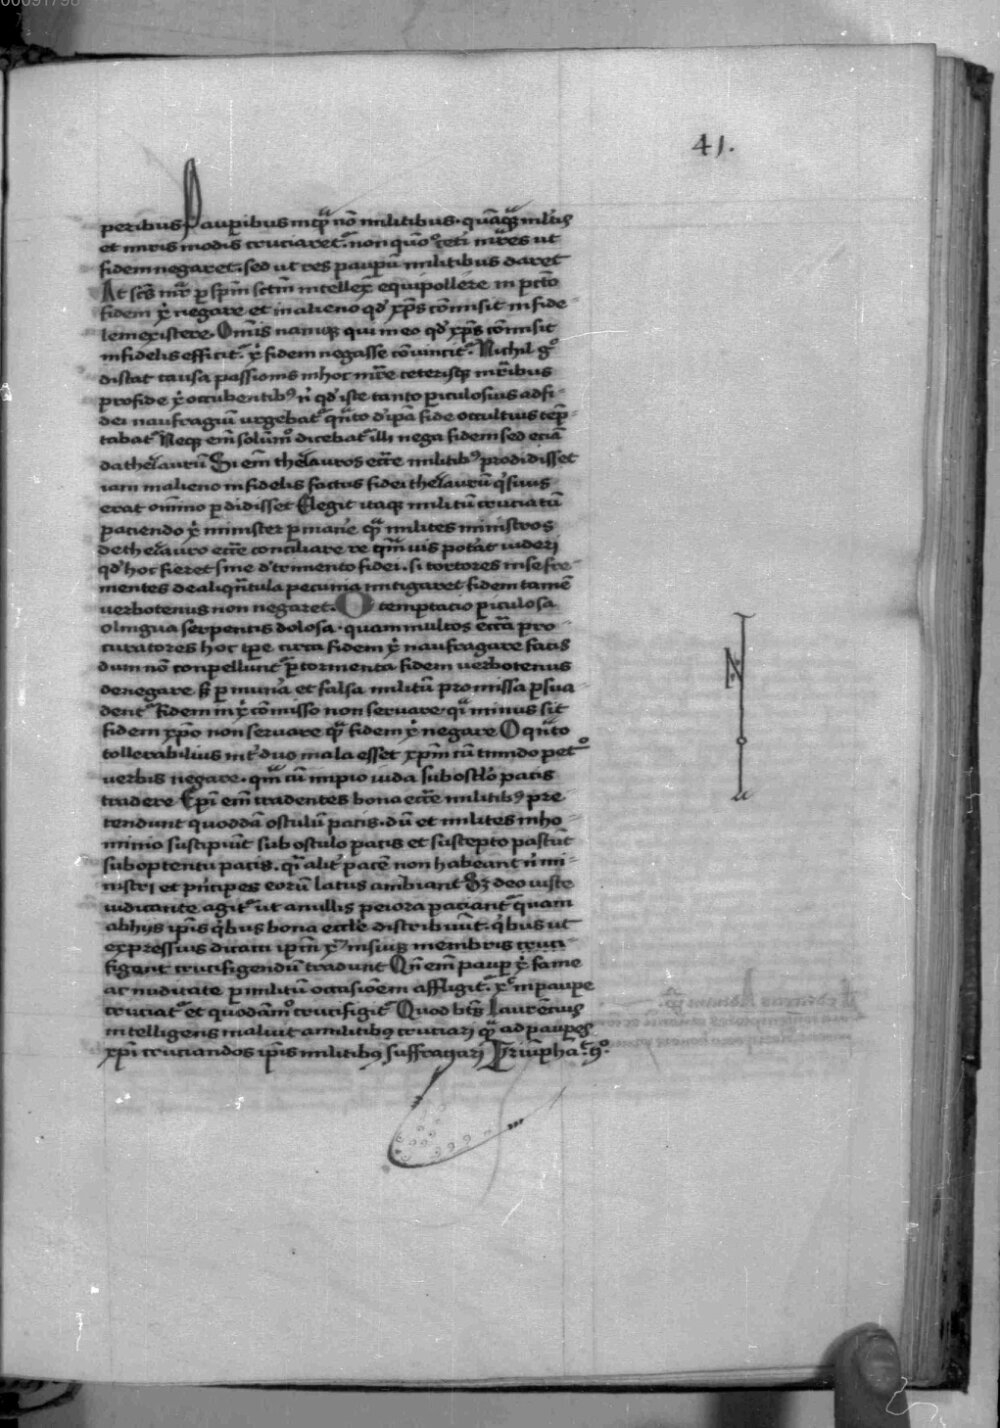 41.
peribus Pauꝑibus inq̃ nõ militibus. quãq̃ mĩtis
et miris modis cruciaret᷑. non quõ ceti mr̃es ut
fidem negaret. sed ut res pauꝑũ militibus daret
At scũs mr̃ ꝑ spm̃ sctm̃ intellex̃ equipollere in pctõ
fidem xp̃i negare et in alieno qđ xp̃s cõmisit infide-
lem existere. Om̃is namqꝫ qui in eo qđ xp̃s cõmisit
infidelis efficit᷑ xp̃i fidem negasse cõuincit᷑. Nichil gͦ
distat causa passionis in hoc mr̃e ceterisqꝫ mr̃ibus
pro fide xp̃i occubentibꝰ n̑ qđ iste tanto ꝑiculosius ad fi-
dei naufragiũ urgebat᷑ qñto d' ipã fide occultius tẽp-
tabat᷑ Neqꝫ em̃ solũmͦ dicebat᷑ illi nega fidem sed eciã
da thesaurũ Si em̃ thesauros ecc̃e militibꝰ prodidisset
iam in alieno infidelis factus fidei thesaurũ q̇ suus
erat om̃ino ꝑdidisset Elegit itaqꝫ militũ cruciatũ
paciendo xp̃i minister ꝑmane᷑ q̃ milites ministros
de thesauro ecc̃e conciliare
qđ hoc fieret sine d'trimento fidei. si tortores in se fre-
mentes de aliqñtula pecunia mitigaret fidem tamẽ
uerbotenus non negaret. O temptacio ꝑiculosa
o lingua serpentis dolosa. quam multos ecc̃ia pro-
curatores hoc tp̃e circa fidem xp̃i naufragare facis
dum nõ conpellunt᷑ ꝑ tormenta fidem uerbotenus
denegare sꝫ ꝑ mun̑a et falsa militũ promissa ꝑsua
dent᷑ fidem in xp̃i cõmisso non seruare. q̃i minus sit
fidem xp̃o non seruare q̃ fidem xp̃i negare O qñto
tollerabilius int᷑ duo mala esset xp̃m cũ timido petͦ
uerbis negare. qm̃ cũ impio iuda sub osclo pacis
tradere Xp̃i em̃ tradentes bona ecc̃e militibꝰ pre-
tendunt quoddã osculũ pacis. dũ et milites in ho-
minio suscipiũt sub osculo pacis et suscepto pascũt
sub optentu pacis. q̃i alit᷑ pacẽ non habeant n̑ mi-
nistri et pͥncipes eorũ latus ambiant Sꝫ deo iuste
iudicante agit᷑ ut a nullis peiora paciant᷑ quam
ab hijs ip̃is q̇bus bona ecc̃le distribuũt. q̇bus ut
expressius dicam ip̃m xp̃m in suis membris cruci-
figent crucifigendũ tradunt Qñ em̃ pauꝑ xp̃i fame
ac nuditate ꝑ militũ occasionem affligit᷑. xp̃c in pauꝑe
cruciat᷑ et quodãmͦ crucifigit᷑ Quod bt̃s Laurẽcius
intelligens maluit a militibꝰ cruciari q̃ ad pauꝑes
xp̃i cruciandos ip̃is militibꝰ suffragari Triũpha᷑ gͦ.